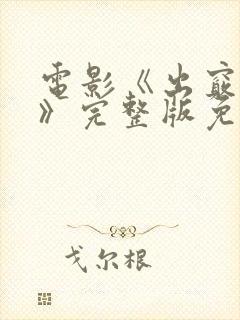 電影《出竅
》完整版免
戈尔根